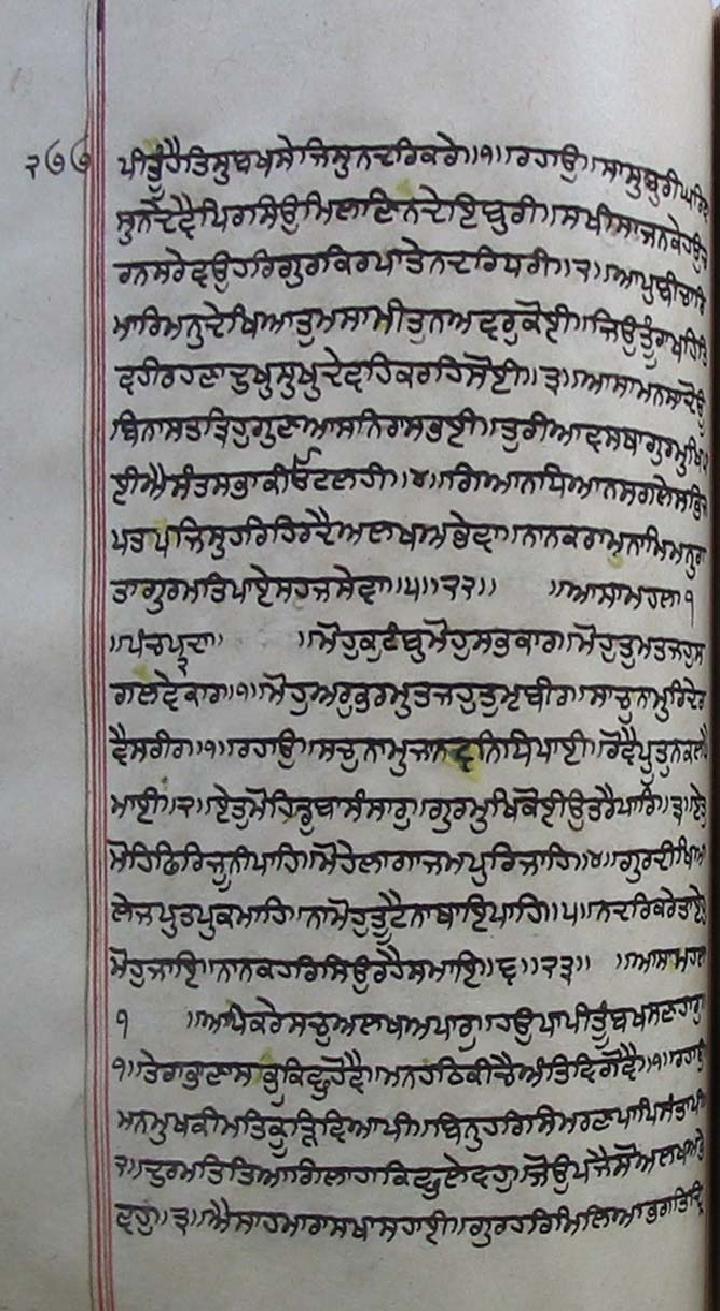 ੨੭੭ ਪੀਤੂੰਹੈਤਿਸੁਬਖਸੇਜਿਸੁਨਦਰਿਕਰੇ॥੧॥ਰਹਾਉ॥ਸਾਸੁਬੁਰੀਘਰਿਵਾ
ਸੁਨਦੇਵੈਪਿਰਸਿਉਮਿਲਣਿਨਦੇਇਬੁਰੀ॥ਸਖੀਸਾਜਨਕੇਹਉਚ
ਰਨਸਰੇਵਉਹਰਿਗੁਰਕਿਰਪਾਤੇਨਦਰਿਧਰੀ॥੨॥ਆਪੁਬੀਚਾਰਿ
ਮਾਰਿਮਨੁਦੇਖਿਆਤੁਮਸਾਮੀਤੁਨਅਵਰੁਕੋਈ॥ਜਿਉਤੂੰਰਾਖਹਿਤਿ
ਵਹੀਰਹਣਾਦੁਖੁਸੁਖੁਦੇਵਹਿਕਰਹਿਸੋਈ॥੩॥ਆਸਾਮਨਸਾਦੋਊ
ਬਿਨਾਸਤਤ੍ਰਿਹੁਗੁਣਆਸਨਿਰਾਸਭਈ॥ਤੁਰੀਆਵਸਥਾਗੁਰਮੁਖਿਪਾ
ਈਐਸੰਤਸਭਾਕੀਓਟਲਹੀ॥੪॥ਗਿਆਨਧਿਆਨਸਗਲੇਸਭਿਜ
ਪਤਪਜਿਸੁਹਰਿਹਿਰਦੈਅਲਖਅਭੇਵਾ॥ਨਾਨਕਰਾਮਨਾਮਿਮਨੁਰਾ
ਤਾਗੁਰਮਤਿਪਾਏਸਹਜਸੇਵਾ॥੫॥੨੨॥ ॥ਆਸਾਮਹਲਾ੧
॥ਪੰਚਪਦਾ॥ ॥ਮੋਹੁਕੁਟੰਬੁਮੋਹੁਸਭਕਾਰ॥ਮੋਹੁਤੁਮਤਜਹੁਸ
ਗਲਵੇਕਾਰ॥੧॥ਮੋਹੁਅਰੁਭਰਮੁਤਜਹੁਤੁਮ੍ਹਬੀਰ॥ਸਾਚੁਨਾਮੁਰਿਦੇਰ
ਵੈਸਰੀਰ॥੧॥ਰਹਾਉ॥ਸਚੁਨਾਮੁਜਾਨਵਨਿਧਿਪਾਈ॥ਰੋਵੈਪੂਤੁਨਕਲਪੈ
ਮਾਈ॥੨॥ਏਤੁਮੋਹਿਡੂਬਾਸੰਸਾਰੁ॥ਗੁਰਮੁਖਿਕੋਈਉਤਰੈਪਾਰਿ॥੩॥ਏਤੁ
ਮੋਹਿਫਿਰਿਜੂਨੀਪਾਹਿ॥ਮੋਹੇਲਾਗਾਜਮਪੁਰਿਜਾਹਿ॥੪॥ਗੁਰਦੀਖਿਆ
ਲੇਜਪੁਤਪੁਕਮਾਹਿ॥ਨਾਮੋਹੁਤੂਟੈਨਾਥਾਇਪਾਹਿ॥੫॥ਨਦਰਿਕਰੇਤਾਏਹੁ
ਮੋਹੁਜਾਇ॥ਨਾਨਕਹਰਿਸਿਉਰਹੈਸਮਾਇ॥੬॥੨੩॥ ॥ਆਸਾਮਹਲਾ
੧ ॥ਆਪਿਕਰੇਸਚੁਅਲਖਅਪਾਰੁ॥ਹਉਪਾਪੀਤੂੰਬਖਸਣਹਾਰੁ
੧॥ਤੇਰਾਭਾਣਾਸਭੁਕਿਛੁਹੋਵੈ॥ਮਨਹਠਿਕੀਚੈਅੰਤਿਵਿਗੋਵੈ॥੧॥ਰਹਾਉ
ਮਨਮੁਖਕੀਮਤਿਕੂੜਿਵਿਆਪੀ॥ਬਿਨੁਹਰਿਸਿਮਰਣਪਾਪਿਸੰਤਾਪੀ
੨॥ਦੁਰਮਤਿਤਿਆਗਿਲਾਹਾਕਿਛੁਲੇਵਹੁ॥ਜੋਉਪਜੈਸੋਅਲਖਅਭੇ
ਵਹੁ॥੩॥ਐਸਾਹਮਾਰਾਸਖਾਸਹਾਈ॥ਗੁਰਹਰਿਮਿਲਿਆਭਗਤਿਦ੍ਰਿ